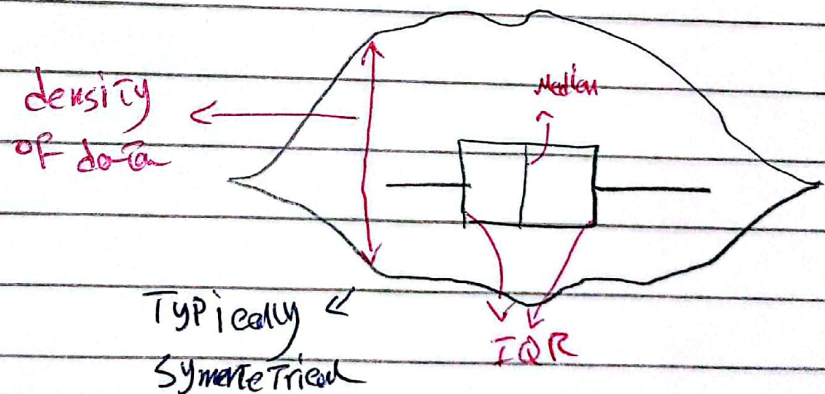 density
of data
Median
IQR
Typically
Symmetrical